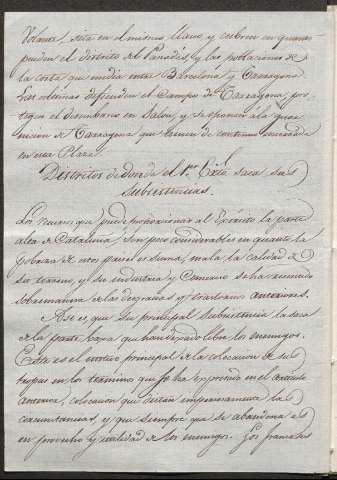 Volante, sita en el mismo llano, y cubren en quanto
pueden el distrito del Panadés, y las poblaciones de
la costa que media entre Barcelona y Tarragona.
Las ultimas defienden el Campo de Tarragona, pro-
tegen el desembarco en Salou, y se oponen á la guar-
nicion de Tarragona que tienen de continuo encerrada
en esta Plaza.
Distritos de donde el 1.er Exto saca sus
Subsistencias.
Los recursos que puede proporcionar al Exército la parte
alta de Cataluña son poco considerables en quanto la
pobreza de estos paises es suma, mala la calidad de
su terreno, y su industria y Comercio se ha resentido
sobremanera de las desgracias y trastornos anteriores.
Asi es que su principal subsistencia la saca
de la parte baxa que han dexado libre los enemigos.
Este es el motivo principal de la colocacion de sus
tropas en los terminos que se ha expresado en el articulo
anterior, colocacion que dictan imperiosamente las
circunstancias, y que siempre que se abandona es
en provecho y utilidad de los enemigos. Los franceses